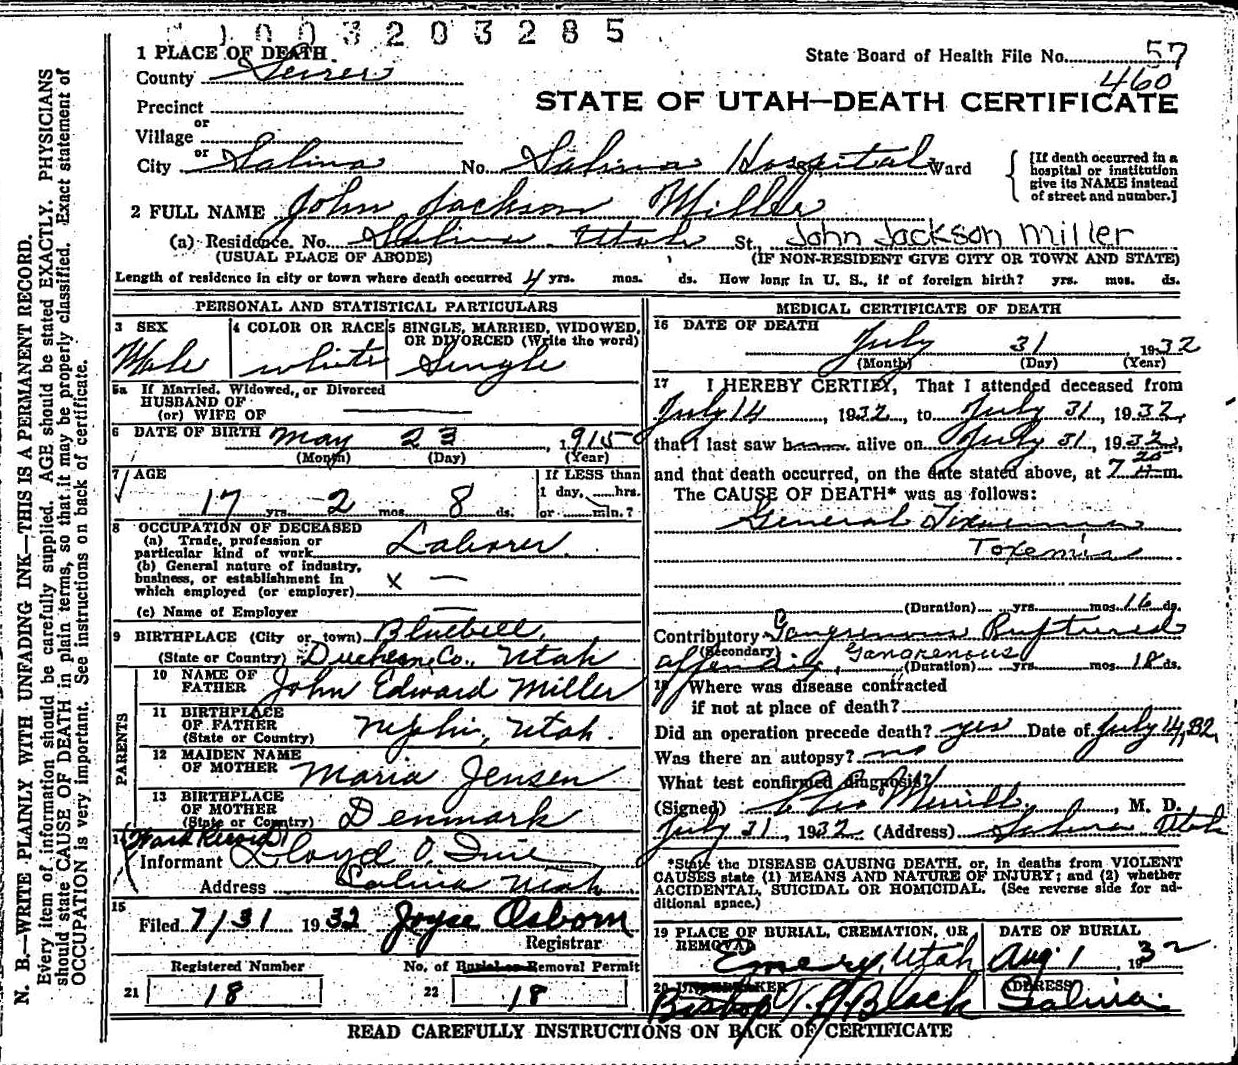 1003203285
1 PLACE OF DEATH
State Board of Health File No. 57
County Sevier
460
Precinct
STATE OF UTAH—DEATH CERTIFICATE
or
Village
or
City Salina No. Salina Hospital Ward
[If death occurred in a hospital or institution give its NAME instead of street and number.]
2 FULL NAME John Jackson Miller
(a) Residence. No. Salina Utah St., John Jackson Miller
(USUAL PLACE OF ABODE) (IF NON-RESIDENT GIVE CITY OR TOWN AND STATE)
Length of residence in city or town where death occurred 4 yrs. mos. ds. How long in U. S., if of foreign birth? yrs. mos. ds.
PERSONAL AND STATISTICAL PARTICULARS
3 SEX 4 COLOR OR RACE 5 SINGLE, MARRIED, WIDOWED, OR DIVORCED (Write the word)
Male white Single
5a If Married, Widowed, or Divorced
HUSBAND OF
(or) WIFE OF
6 DATE OF BIRTH May 23, 1915
(Month) (Day) (Year)
7 AGE If LESS than
17 yrs. 2 mos. 8 ds. 1 day, hrs. or min.?
8 OCCUPATION OF DECEASED
(a) Trade, profession or
particular kind of work Laborer.
(b) General nature of industry,
business, or establishment in
which employed (or employer) x —
(c) Name of Employer —
9 BIRTHPLACE (City or town) Bluebell,
(State or Country) Duchesne Co., Utah
PARENTS
10 NAME OF FATHER John Edward Miller
11 BIRTHPLACE OF FATHER (State or Country) Nephi, Utah.
12 MAIDEN NAME OF MOTHER Maria Jensen
13 BIRTHPLACE OF MOTHER (State or Country) Denmark
14 (Ward Record)
Informant Lloyd O.
Address Salina Utah
15 Filed 7/31 1932 Joyce Osborn
Registrar
Registered Number No. of Burial or Removal Permit
21 18 22 18
MEDICAL CERTIFICATE OF DEATH
16 DATE OF DEATH
July 31 1932
(Month) (Day) (Year)
17 I HEREBY CERTIFY, That I attended deceased from
July 14, 1932, to July 31, 1932,
that I last saw h alive on July 31, 1932,
and that death occurred, on the date stated above, at 7 20 m.
The CAUSE OF DEATH* was as follows:
General Toxemia
Toxemia
(Duration) yrs. mos. 16 ds.
Contributory Gangrenous Ruptured
(Secondary)
appendix, Gangrenous (Duration) yrs. mos. 18 ds.
18 Where was disease contracted
if not at place of death?
Did an operation precede death? yes Date of July 14, 32
Was there an autopsy? no
What test confirmed diagnosis?
(Signed) Merrill, M. D.
July 31, 1932 (Address) Salina Utah
*State the DISEASE CAUSING DEATH, or, in deaths from VIOLENT
CAUSES state (1) MEANS AND NATURE OF INJURY; and (2) whether
ACCIDENTAL, SUICIDAL OR HOMICIDAL. (See reverse side for ad-
ditional space.)
19 PLACE OF BURIAL, CREMATION, OR REMOVAL DATE OF BURIAL
Emery, Utah Aug 1 1932
20 UNDERTAKER ADDRESS
Bishop Black Salina.
READ CAREFULLY INSTRUCTIONS ON BACK OF CERTIFICATE
N. B.—WRITE PLAINLY WITH UNFADING INK—THIS IS A PERMANENT RECORD.
Every item of information should be carefully supplied. AGE should be stated EXACTLY. PHYSICIANS
should state CAUSE OF DEATH in plain terms, so that it may be properly classified. Exact statement of
OCCUPATION is very important. See instructions on back of certificate.